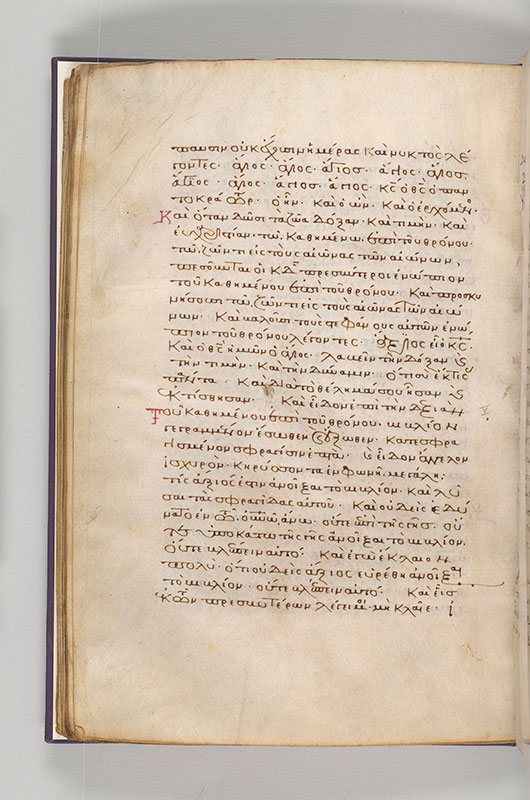 παυσιν οὐκ ἔχωσιν ἡμέρας καὶ νυκτὸς λέ
γοντες· ἅγιος· ἅγιος· ἅγιος· ἅγιος· ἅγιος·
ἅγιος· ἅγιος· ἅγιος· ἅγιος· κς ὁ θς ὁ παν
τοκράτωρ· ὁ ἦν· καὶ ὁ ὢν· καὶ ὁ ἐρχόμενος·
Καὶ ὅταν δώσι τὰ ζῶα δόξαν· καὶ τιμὴν· καὶ
εὐχαριστίαν· τῶ καθημένω ἐπὶ τοῦ θρόνου·
τῶ ζῶντι εἰς τοὺς αἰῶνας τῶν αἰώνων,
πεσοῦνται οἱ κδ πρεσβύτεροι ἐνώπιον
τοῦ καθημένου ἐπὶ τοῦ θρόνου· καὶ προσκυ
νήσουσι τῶ ζῶντι εἰς τοὺς αἰῶνας τῶν αἰώ
νων· καὶ βαλοῦσι τοὺς στεφάνους αὐτῶν ἐνώ
πιον τοῦ θρόνου λέγοντες· ἄξιος εἶ ὁ κς·
καὶ ὁ θς ἡμῶν ὁ ἅγιος· λαβεῖν τὴν δόξαν καὶ
τὴν τιμὴν· καὶ τὴν δύναμιν· ὅτι σὺ ἔκτισας
πάντα· καὶ διὰ τὸ θέλημά σου ἦσαν καὶ
ἐκτίσθησαν· καὶ εἶδον ἐπὶ τὴν δεξιὰν
τοῦ καθημένου ἐπὶ τοῦ θρόνου· βιβλίον
γεγραμμένον ἔσωθεν καὶ ἔξωθεν· κατεσφρα
γισμένον σφραγίσιν ἑπτά· καὶ εἶδον ἄγγελον
ἰσχυρὸν· κηρύσσοντα ἐν φωνῆ μεγάλη·
τίς ἄξιός ἐστιν ἀνοῖξαι τὸ βιβλίον· καὶ λῦ
σαι τὰς σφραγίδας αὐτοῦ· καὶ οὐδεὶς ἐδύ
νατο ἐν τῶ οὐνῶ ἄνω· οὔτε ἐπὶ τῆς γῆς· οὔ
τε ὑποκάτω τῆς γῆς ἀνοῖξαι τὸ βιβλίον·
οὔτε βλέπειν αὐτό· καὶ ἐγὼ ἔκλαιον
πολύ· ὅτι οὐδεὶς ἄξιος εὑρέθη ἀνοῖξαι
τὸ βιβλίον· οὔτε βλέπειν αὐτό· καὶ εἷς
ἐκ τῶν πρεσβυτέρων λέγει μοι· μὴ κλαῖε· ἰ